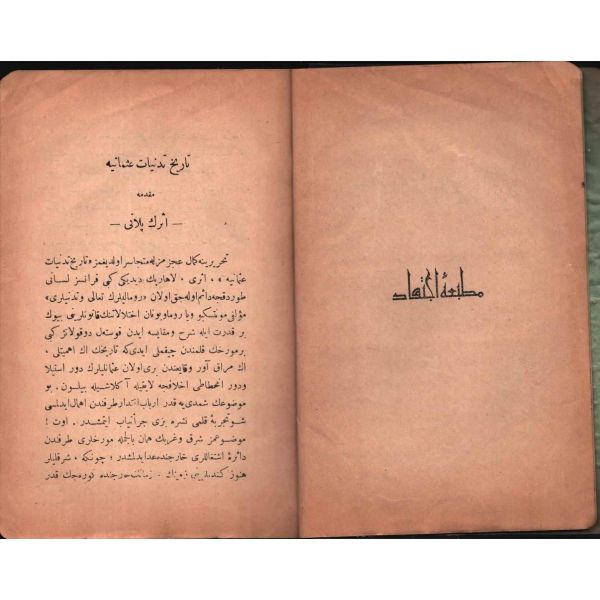 مطبعهٔ اجتهاد
تاریخ تدنیات عثمانیه
مقدمه
— اثرك پلانی —
تحریرینه كمال عجز مزله متجاسر اولدیغمز «تاریخ تدنیات
عثمانیه» ، اثری ، لاهارپك دیدیكی كبی فرانسز لسانی
طوردقجه دائم اوله جق اولان «رومالیلرك تعالی وتدنیلری»
مؤلفی مونتسكیو ویا روماوبونان اختلالاتنك قانونلرینی بیوك
بر قدرت ایله شرح ومقایسه ایدن فوستهل دوقولانژ كبی
برمورخك قلمندن چیقملی ایدی كه تاریخك اك اهمیتلی ،
اك مراق آور وقایعندن بری اولان عثمانلیلرك دور استیلا
ودور انحطاطی اخلافجه لایقیله آكلاشیله بیلسون . بو
موضوعك شمدی یه قدر ارباب اقتدار طرفندن اهمال ایدلمسی
شو تجربهٔ قلمی نشره بزی جرأتیاب ایتمشدر . اوت !
موضوعمز شرق وغربك همان بالجمله مورخلری طرفندن
دائرهٔ اشتغاللری خارجنده عد ایدلمشدر ؛ چونكه ، شرقلیلر
هنوز كندیلرینی زمینك - زمانك خارجنده كوره جك قدر